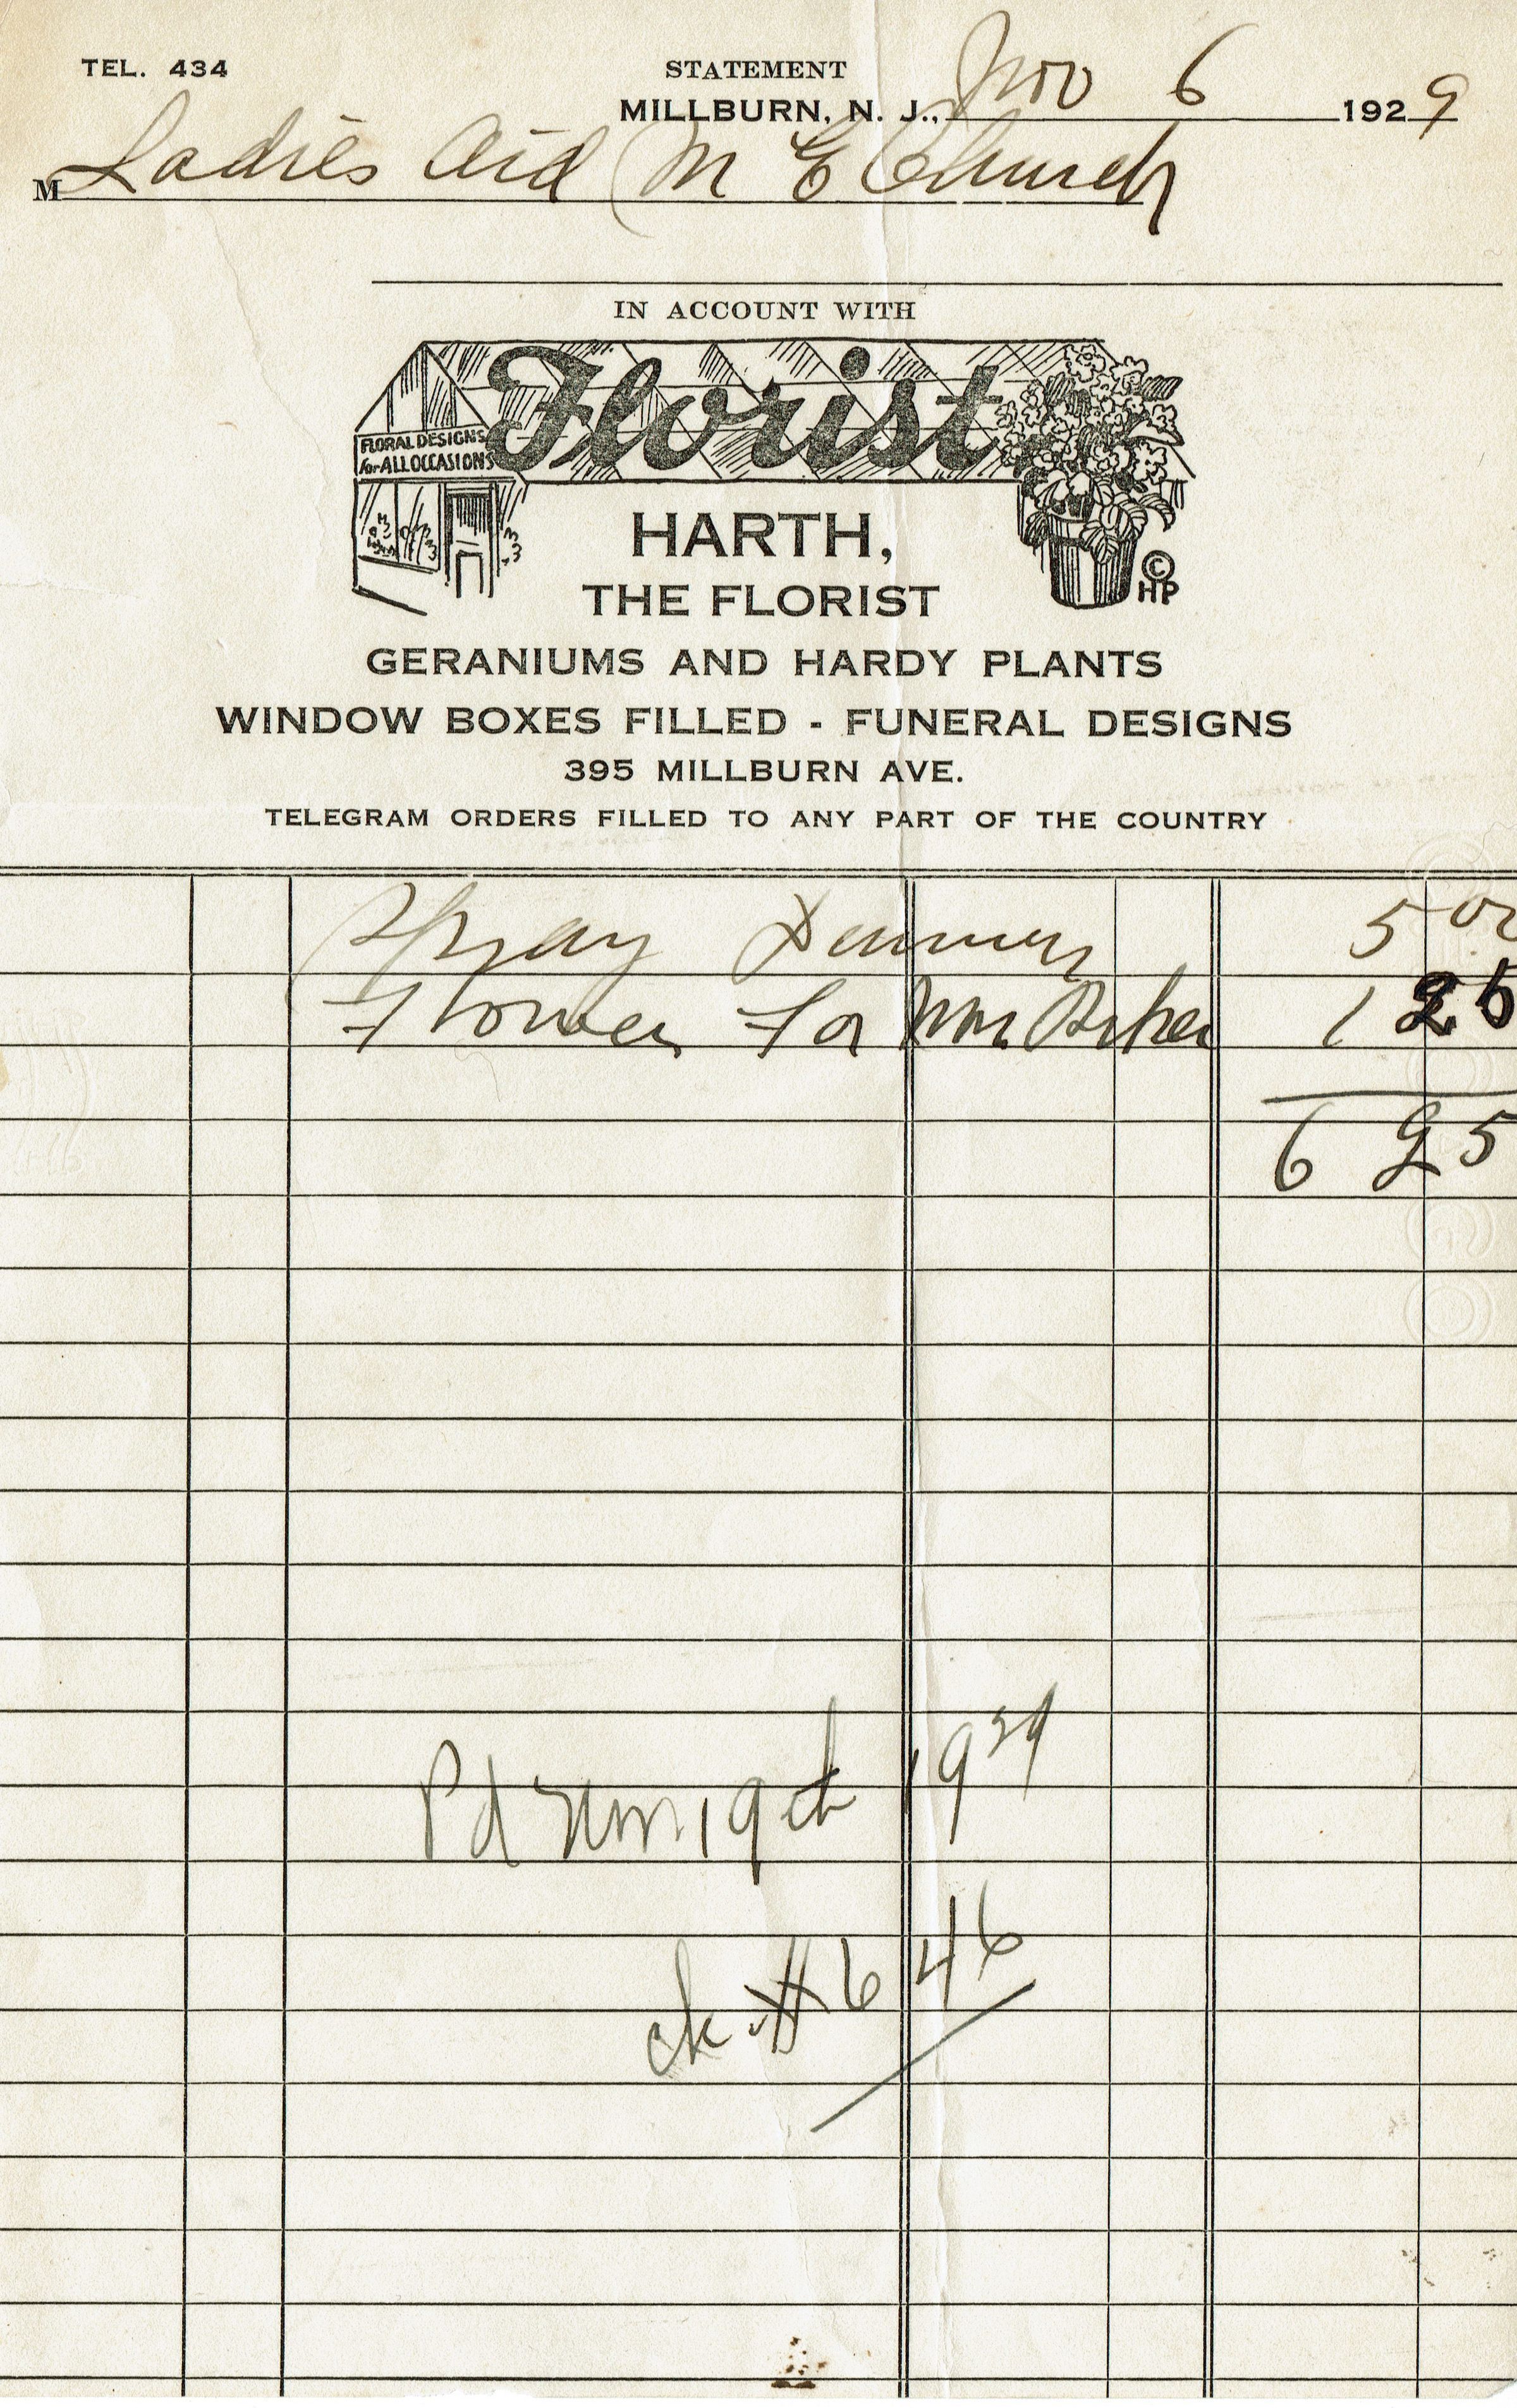 TEL. 434
STATEMENT
MILLBURN, N. J., Nov 6 1929
M Ladies Aid (M E Church
IN ACCOUNT WITH
Florist
FLORAL DESIGNS
for ALL OCCASIONS
HARTH,
THE FLORIST
© HP
GERANIUMS AND HARDY PLANTS
WINDOW BOXES FILLED - FUNERAL DESIGNS
395 MILLBURN AVE.
TELEGRAM ORDERS FILLED TO ANY PART OF THE COUNTRY
Spray 5 00
Flowers For 1 25
6 25
Pd Nov. 19th 1929
ck # 646